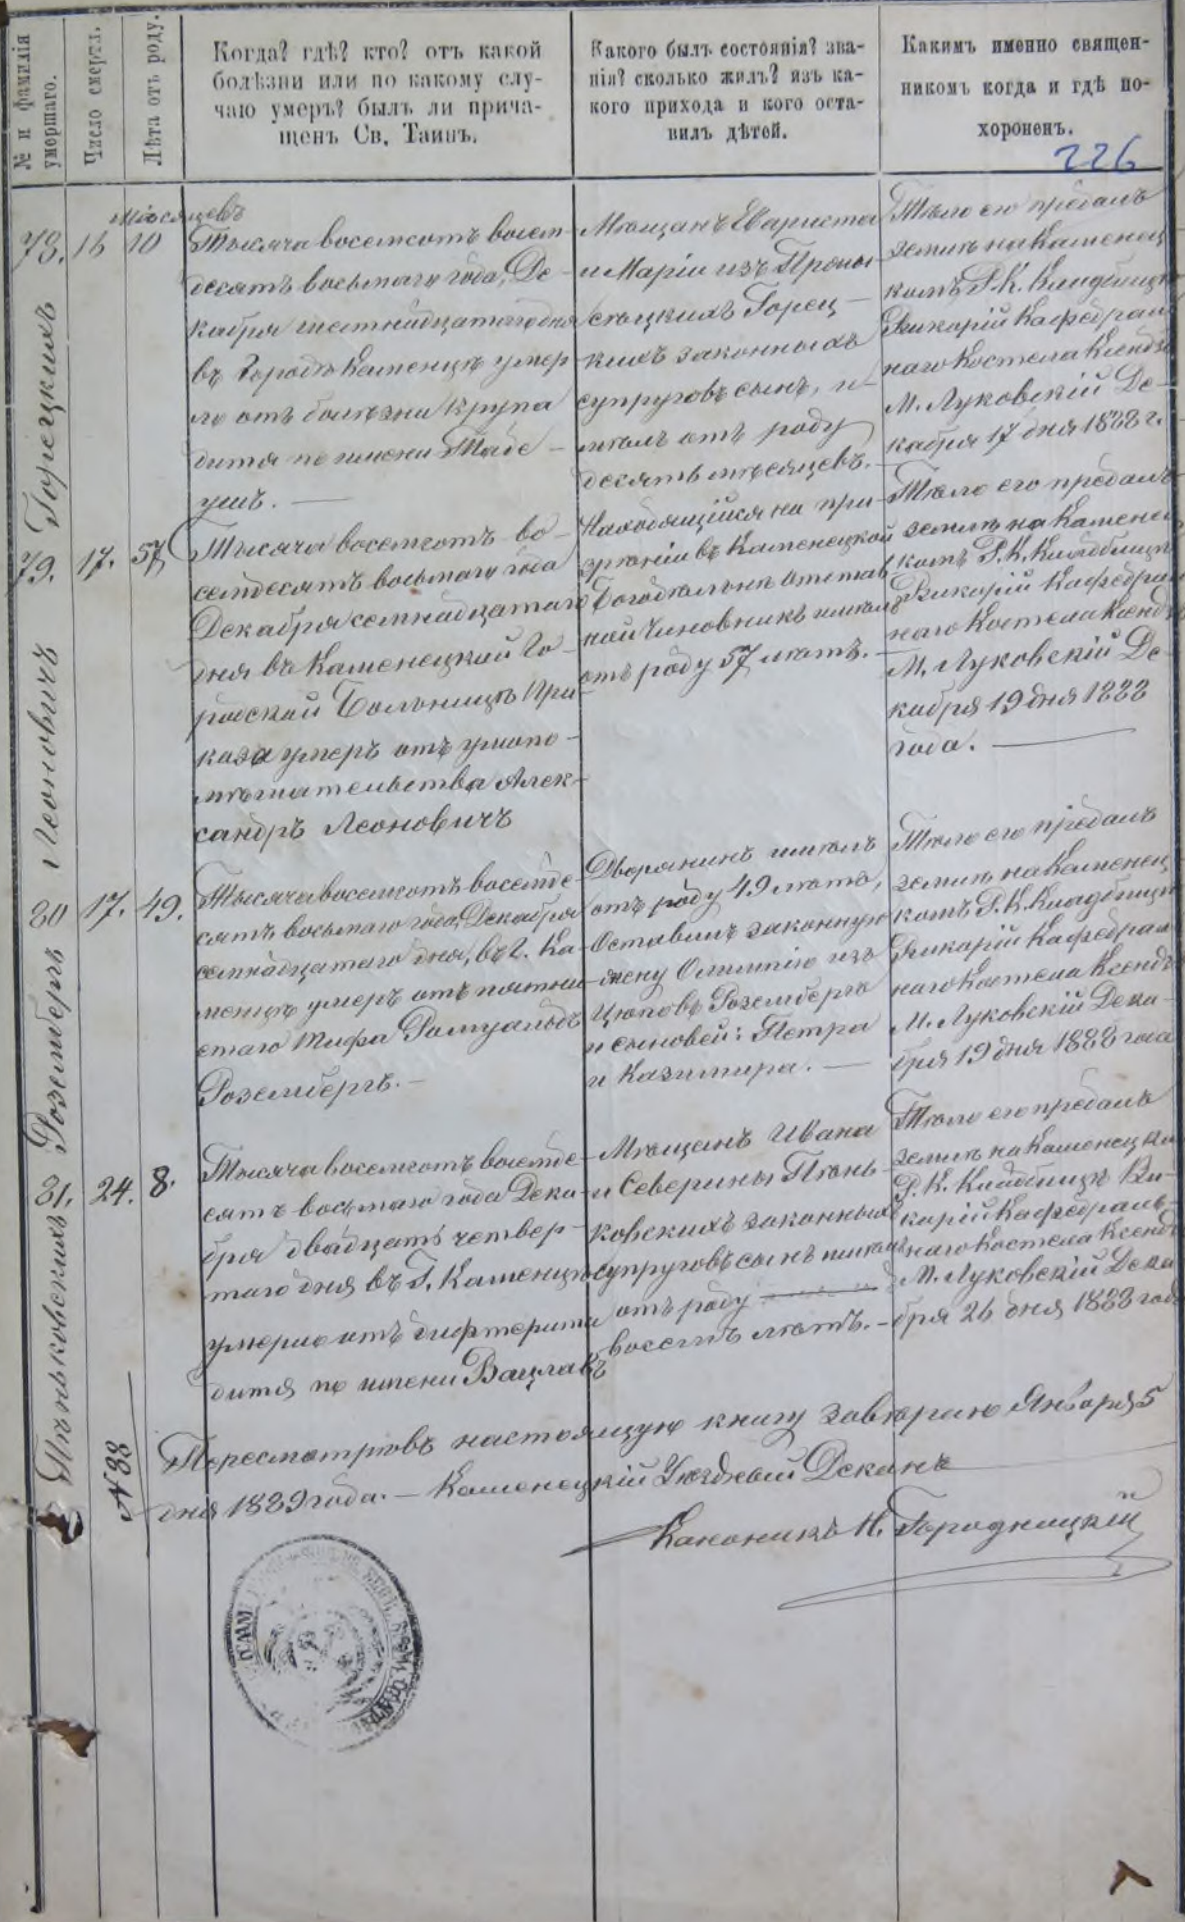 № и фамилія умершаго.
Число смерти.
Лѣта отъ роду.
Когда? гдѣ? кто? отъ какой
болѣзни или по какому слу-
чаю умеръ? былъ ли прича-
щенъ Св. Таинъ.
Какого былъ состоянія? зва-
нія? сколько жилъ? изъ ка-
кого прихода и кого оста-
вилъ дѣтей.
Какимъ именно священ-
никомъ когда и гдѣ по-
хороненъ.
226
78.
Горецкихъ
16
мѣсяцевъ
10
Тысяча восемсотъ восем-
десятъ восьмаго года, Де-
кабря шестнадцатаго дня
въ Городѣ Каменцѣ умер-
ло отъ болѣзни крупа
дитя по имени Таде-
ушъ. —
Мѣщанъ Евариста
и Маріи изъ
Горец-
кихъ законныхъ
супруговъ сынъ, и-
мѣлъ отъ роду
десять мѣсяцевъ. —
Тѣло его предалъ
землѣ на Каменец-
комъ Р. К. Кладбищѣ
Викарій Кафедраль
наго Костела Ксендзъ
М. Луковскій Де-
кабря 17 дня 1888 г.
79.
Леоновичъ
17.
57
Тысяча восемсотъ во-
семдесятъ восьмаго года
Декабря семнадцатаго
дня въ Каменецкой Го-
родской Больницѣ При-
каза умеръ отъ умопо-
мѣшательства Алек-
сандръ Леоновичъ
Находящійся на при-
зрѣніи въ Каменецкой
Богодѣльнѣ отстав
ной Чиновникъ имѣлъ
отъ роду 57 лѣтъ. —
Тѣло его предалъ
землѣ на Каменец
комъ Р. К. Кладбищѣ
Викарій Кафедраль
наго Костела Ксендзъ
М. Луковскій Де-
кабря 19 дня 1888
года. —
80
Роземберъ
17.
49.
Тысяча восемсотъ восемде-
сятъ восьмаго года, Декабря
семнадцатаго дня, въ г. Ка-
менцѣ умеръ отъ пятни-
стаго тифа Ромуальдъ
Роземберъ. —
Дворянинъ имѣлъ
отъ роду 49 лѣтъ,
Оставилъ законную
жену Олимпію изъ
Цюповъ Роземберъ
и сыновей: Петра
и Казимира. —
Тѣло его предалъ
землѣ на Каменец
комъ Р. К. Кладбищѣ
Викарій Кафедраль
наго Костела Ксендзъ
М. Луковскій Дека-
бря 19 дня 1888 года
81.
Пѣньковскихъ
24.
8.
Тысяча восемсотъ восемде-
сятъ восьмаго года Дека-
бря двадцать четвер-
таго дня въ Г. Каменцѣ
умерло отъ дифтерита
дитя по имени Вацлавъ
Мѣщанъ Ивана
и Северины Пѣнь-
ковскихъ законныхъ
супруговъ сынъ имѣлъ
отъ роду
восемъ лѣтъ. —
Тѣло его предалъ
землѣ на Каменецкомъ
Р. К. Кладбищѣ Ви-
карій Кафедраль-
наго Костела Ксендзъ
М. Луковскій Дека
бря 26 дня 1888 года
N 88
Пересмотрѣвъ настоящую книгу завѣряю Января 5
дня 1889 года. — Каменецкій Уѣздный Деканъ
Каноникъ Н. Городницкій